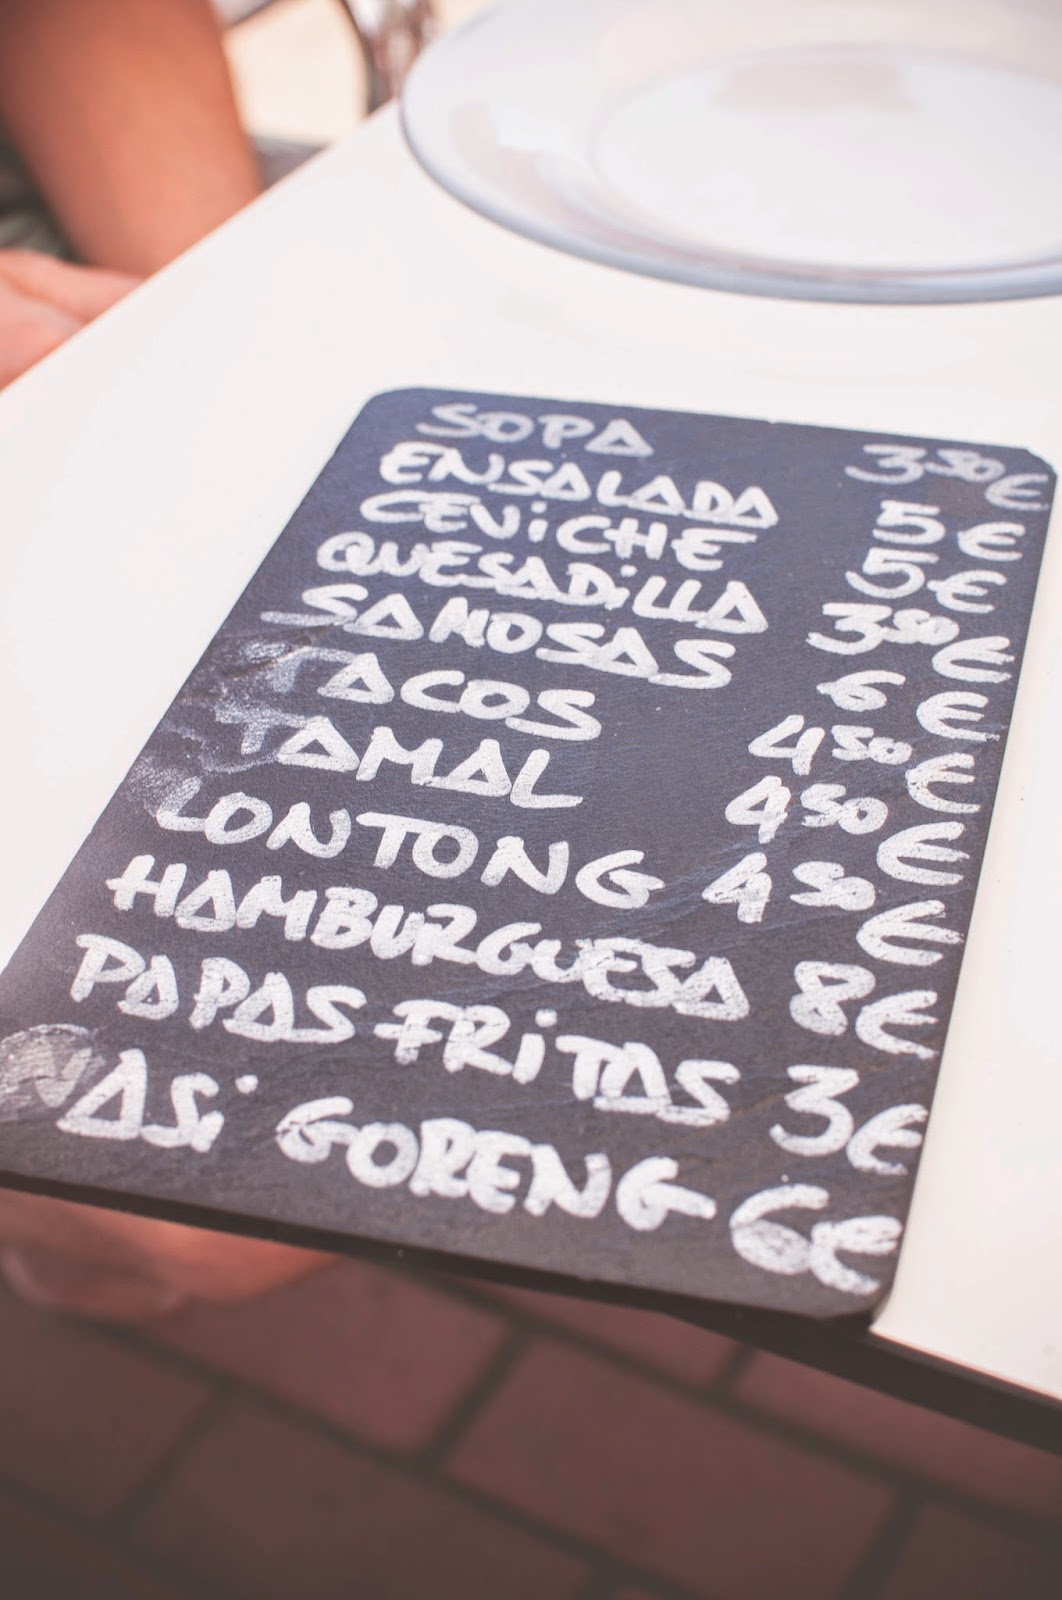 SOPA 3,50 €
ENSALADA 5 €
CEVICHE 5 €
QUESADILLA 3,50 €
SAMOSAS 6 €
TACOS 4,50 €
TAMAL 4,50 €
LONTONG 4,50 €
HAMBURGUESA 8 €
PAPAS FRITAS 3 €
NASI GORENG 6 €